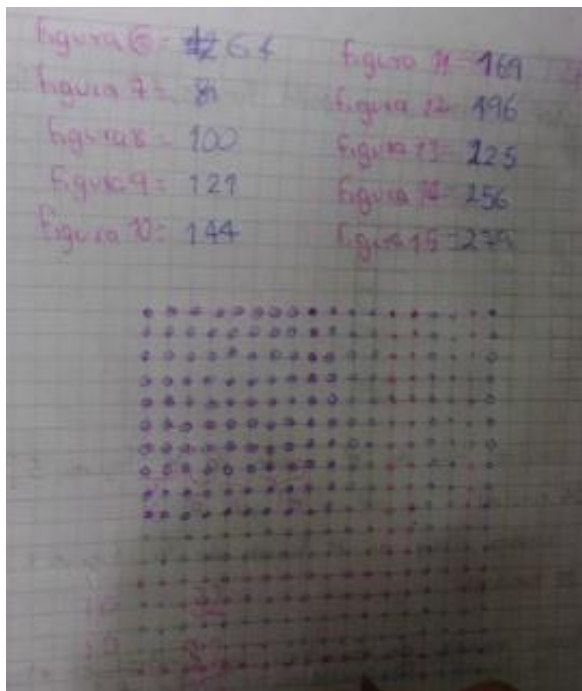 Figura 6= 64
Figura 7= 81
Figura 8= 100
Figura 9= 121
Figura 10= 144
Figura 11=169
Figura 12 196
Figura 13= 225
Figura 14= 256
Figura 15=279